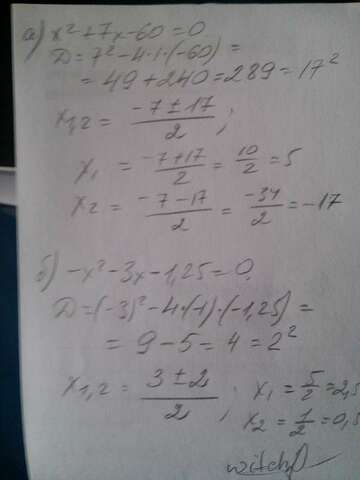 а) x² + 7x - 60 = 0
D = 7² - 4·1·(-60) =
= 49 + 240 = 289 = 17²
x₁,₂ = (-7 ± 17)/2 ;
x₁ = (-7+17)/2 = 10/2 = 5
x₂ = (-7-17)/2 = -34/2 = -17
б) -x² - 3x - 1,25 = 0.
D = (-3)² - 4·(-1)·(-1,25) =
= 9 - 5 = 4 = 2²
x₁,₂ = (3 ± 2)/2 ; x₁ = 5/2 = 2,5
x₂ = 1/2 = 0,5